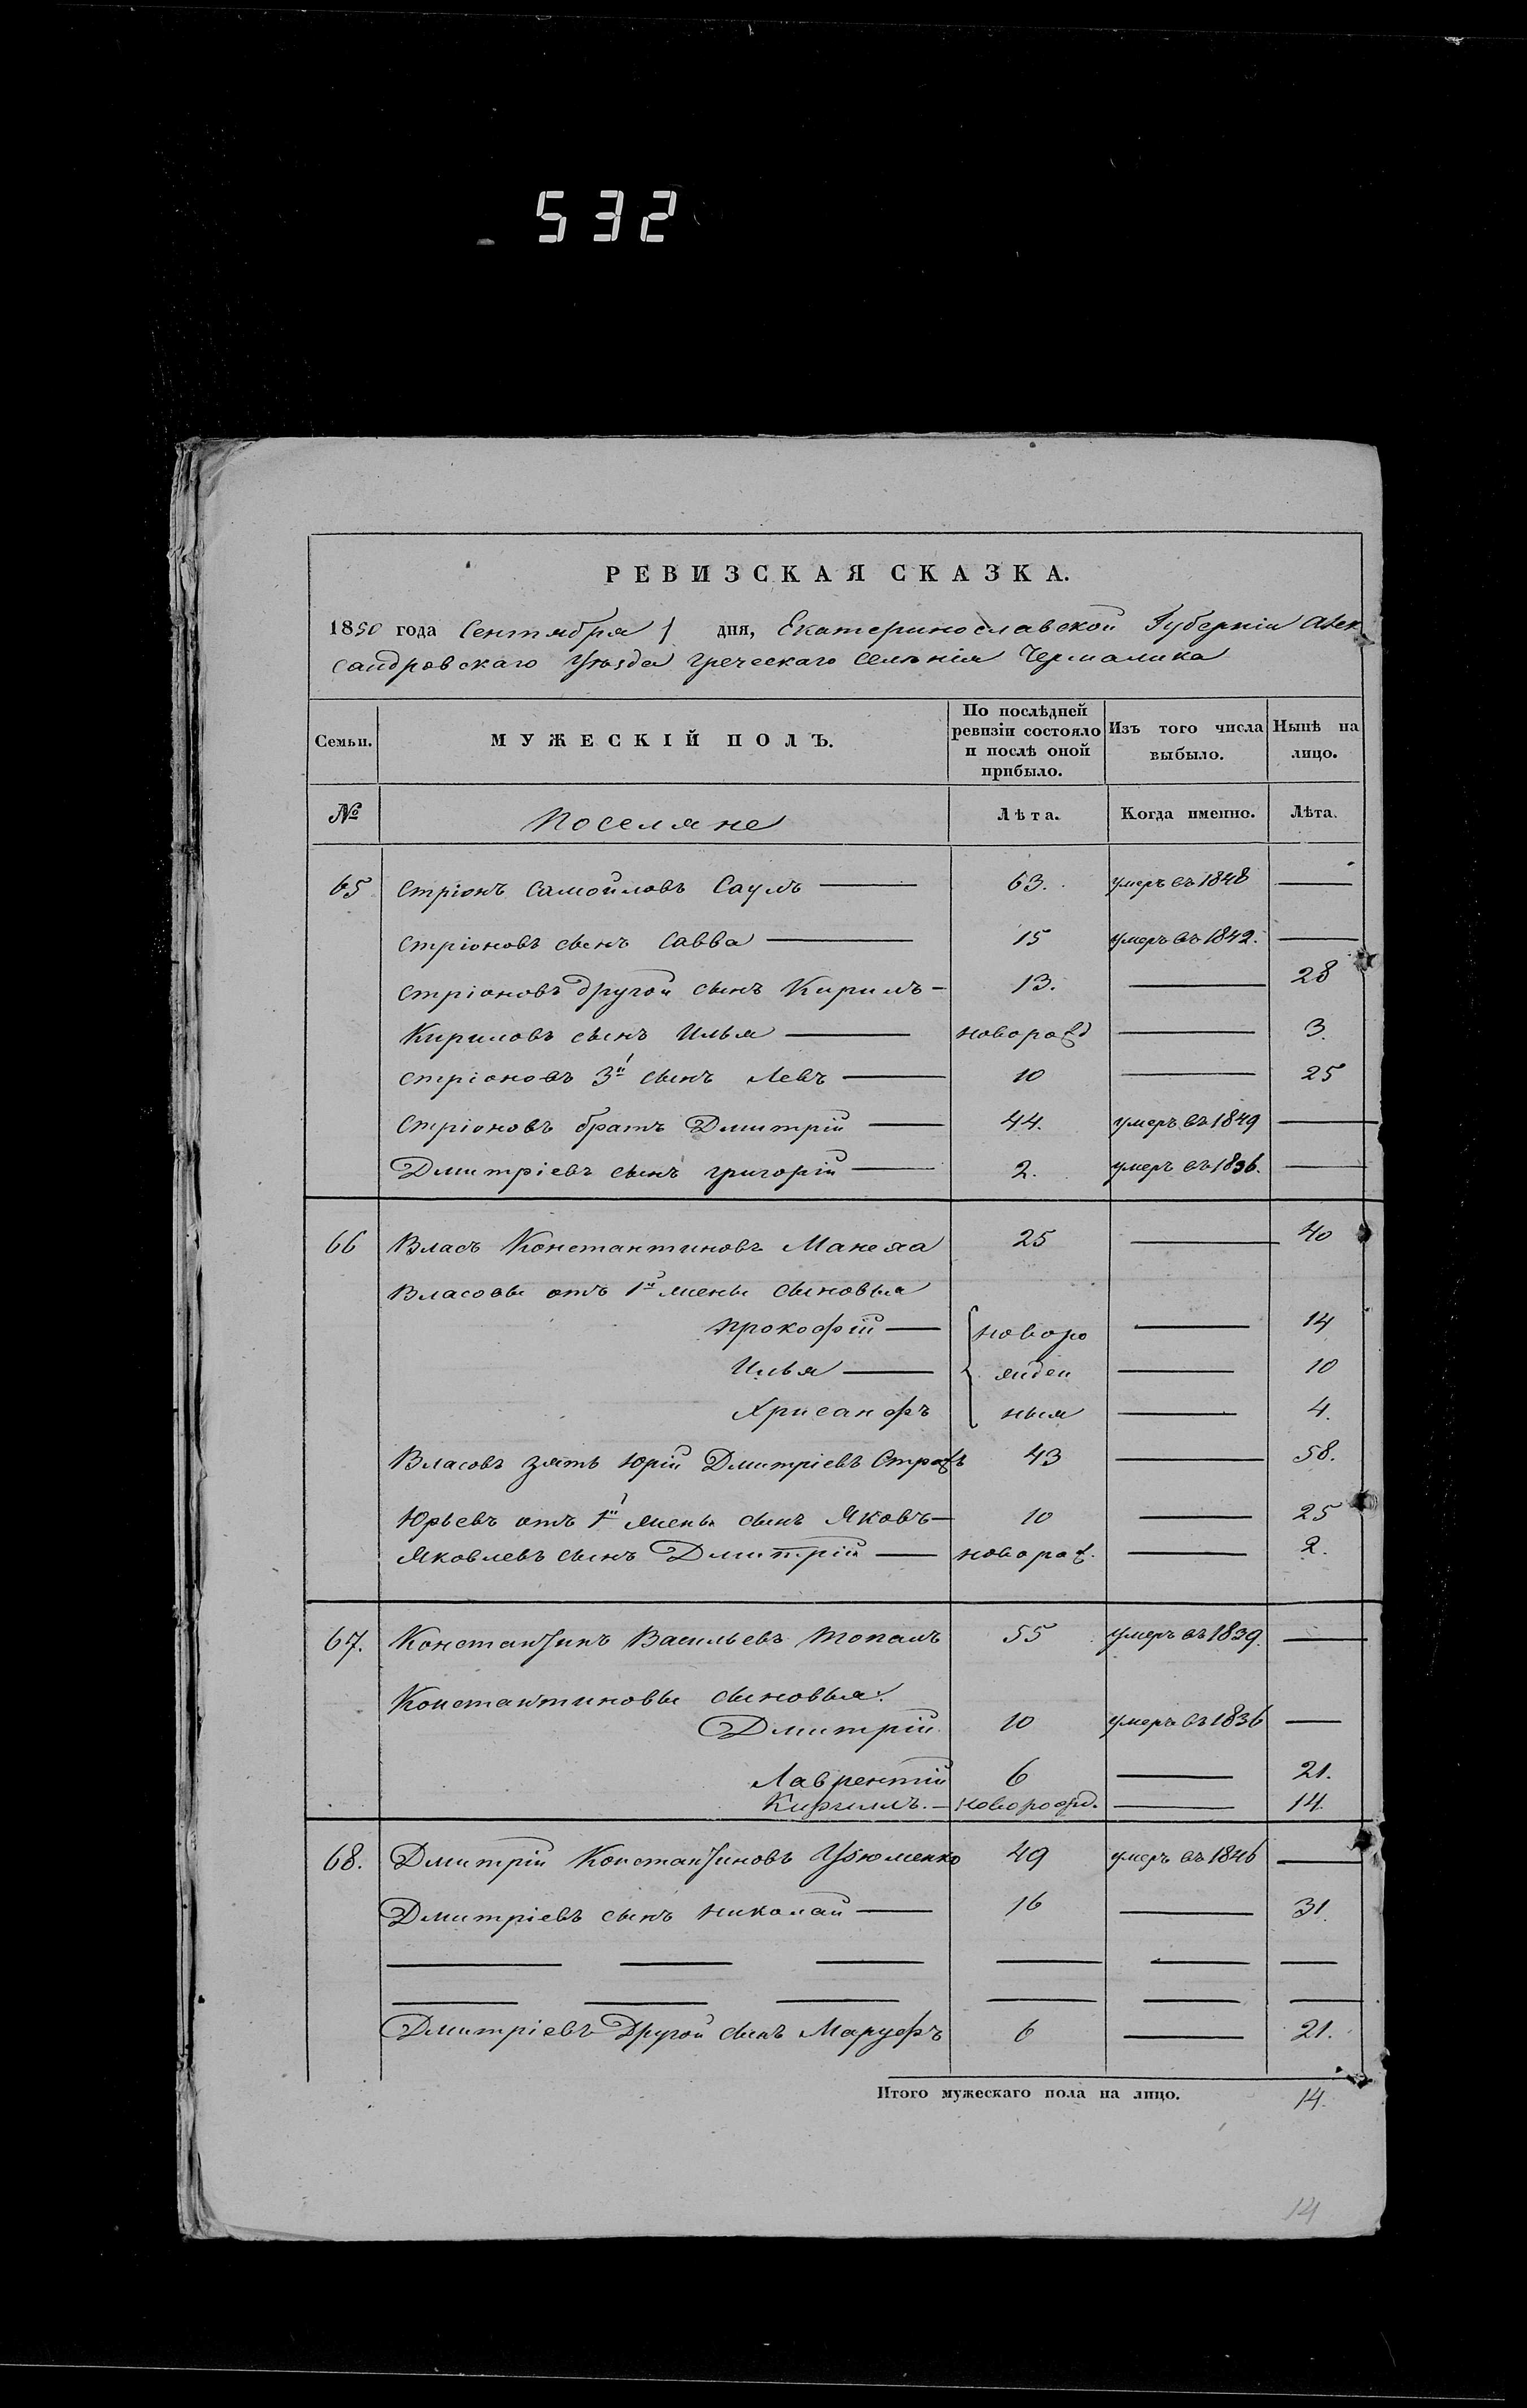 532
РЕВИЗСКАЯ СКАЗКА.
1850 года Сентября 1 дня, Екатеринославской Губерніи Алек
сандровскаго Уѣзда греческаго селѣнія Чермалика
Семьи. МУЖЕСКІЙ ПОЛЪ. По послѣдней ревизіи состояло и послѣ оной прибыло. Изъ того числа выбыло. Нынѣ на лицо.
№ Поселяне Лѣта. Когда именно. Лѣта.
65 Стріонъ Самойловъ Саулъ — 63. умеръ въ 1848 —
Стріоновъ сынъ Савва — 15 умеръ въ 1842. —
Стріоновъ другой сынъ Кирилъ — 13. — 28
Кириловъ сынъ Илья — новорожд — 3.
Стріоновъ 3й сынъ Левъ — 10 — 25
Стріоновъ братъ Дмитрій — 44. умеръ въ 1849 —
Дмитріевъ сынъ григорій — 2. умеръ въ 1836. —
66 Власъ Константиновъ 25 — 40
Власовы отъ 1й жены сыновья
Прокофій — новоро — 14
Илья — жден — 10
Хрисанфъ ныя — 4.
Власовъ зять Юрій Дмитріевъ 43 — 58.
Юрьевъ отъ 1й жены сынъ Яковъ — 10 — 25
Яковлевъ сынъ Дмитрій — новорож. — 2.
67. Константинъ Васильевъ Топалъ 55 умеръ въ 1839. —
Константиновы сыновья.
Дмитрій 10 умеръ въ 1836 —
Лаврентій 6 — 21.
Кирилъ. — новорожд. — 14.
68. Дмитрій Константиновъ 49 умеръ въ 1846 —
Дмитріевъ сынъ Николай — 16 — 31.
— — — — — —
— — — — — —
Дмитріевъ Другой сынъ Маруфъ 6 — 21.
Итого мужескаго пола на лицо. 14.
14